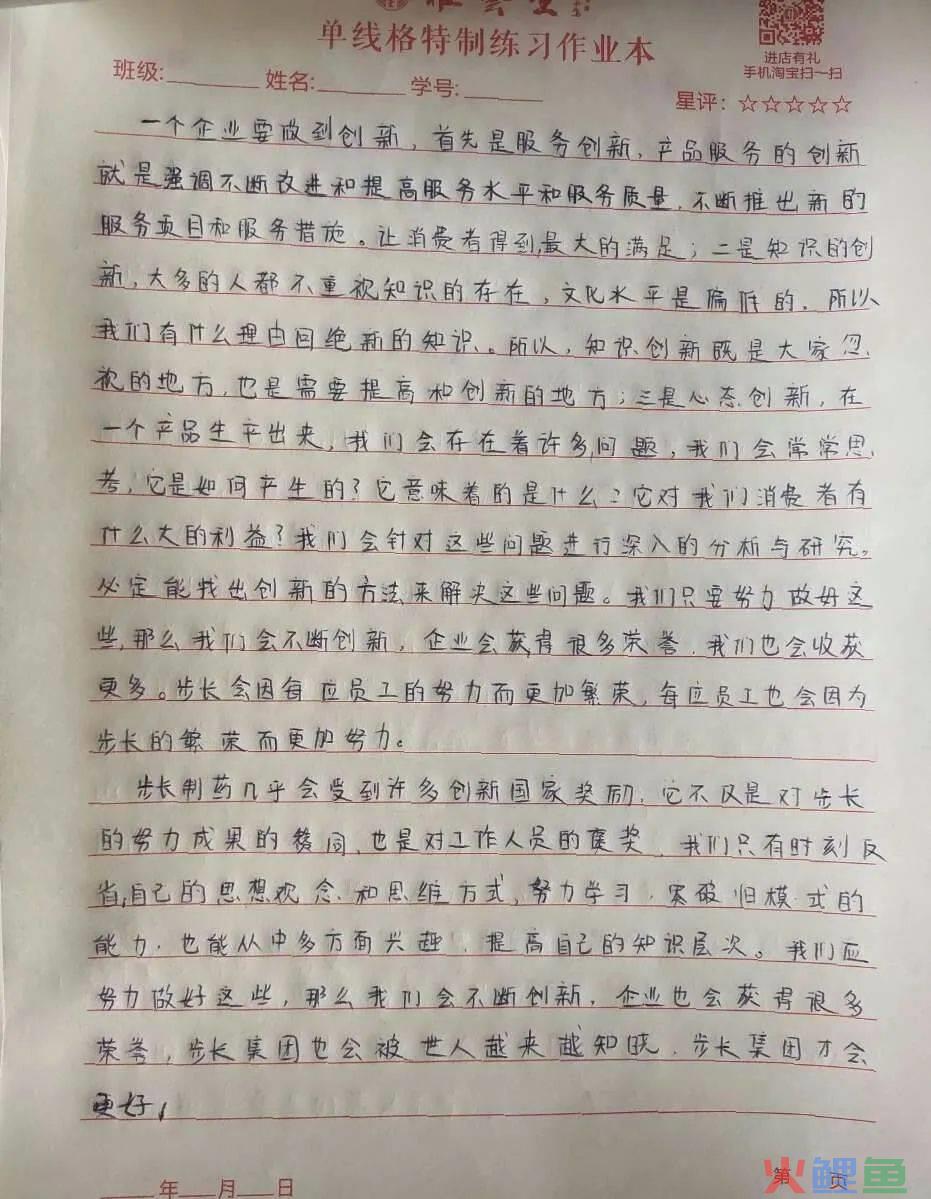 单线格特制练习作业本
进店有礼
手机淘宝扫一扫
班级:________ 姓名:________ 学号:________
星评:☆☆☆☆☆
一个企业要做到创新，首先是服务创新，产品服务的创新
就是强调不断改进和提高服务水平和服务质量，不断推出新的
服务项目和服务措施。让消费者得到最大的满足；二是知识的创
新，大多的人都不重视知识的存在，文化水平是偏低的，所以
我们有什么理由回绝新的知识。所以，知识创新既是大家忽
视的地方，也是需要提高和创新的地方；三是心态创新，在
一个产品生产出来，我们会存在着许多问题，我们会常常思
考，它是如何产生的？它意味着的是什么？它对我们消费者有
什么大的利益？我们会针对这些问题进行深入的分析与研究。
必定能找出创新的方法来解决这些问题。我们只要努力做好这
些，那么我们会不断创新，企业会获得很多荣誉，我们也会收获
更多。步长会因每位员工的努力而更加繁荣，每位员工也会因为
步长的繁荣而更加努力。
步长制药几乎会受到许多创新国家奖励，它不仅是对步长
的努力成果的 同，也是对工作人员的褒奖，我们只有时刻反
省自己的思想观念和思维方式，努力学习，突破旧模式的
能力，也能从中多方面兴趣，提高自己的知识层次。我们应
努力做好这些，那么我们会不断创新，企业也会获得很多
荣誉，步长集团也会被世人越来越知晓，步长集团才会
更好，
____年____月____日
第 页
火鲤鱼